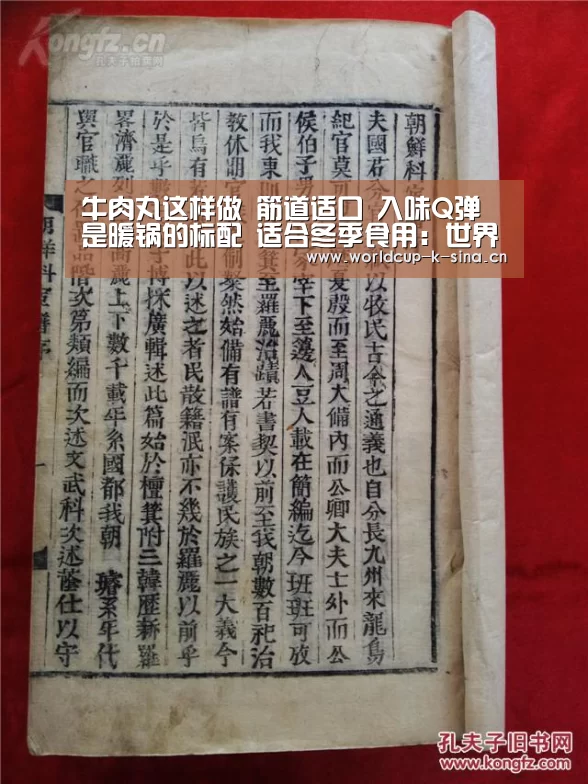 Kongfz.cn
孔夫子旧书网
牛肉丸这样做 筋道适口 入味Q弹
是暖锅的标配 适合冬季食用：世界
www.worldcup-k-sina.cn
朝鮮科
夫國若以牧民古今之通義也自分長九州來龍鳥
紀官莫夏殷而至周大備內而公卿大夫士外而公
侯伯子男宰下至籩人豆人載在簡編迄今班班可放
而我東則箕至羅麗治蹟若書契以前至我朝數百祀治
教休朙官制粲然始備有譜有案保護民族之一大義今
皆烏有此以述之者民散籍泯亦不幾於羅麗以前乎
於是乎博採廣輯述此篇始於檀箕附三韓歷新羅
畧濟麗列高麗上下數千載年系國都我朝 璿系年代
與官職之品階次第類編而次述文武科次述蔭仕以守
鮮科宦譜序
一
孔夫子旧书网
www.kongfz.com